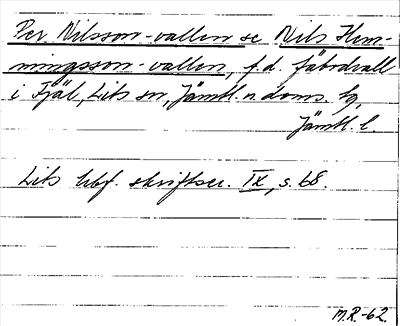 Per Nilsson-vallen se Nils Hem-
mingsson-vallen, f.d. fäbodvall
i Fjäl, Lits sn, Jämtl. n. doms. tg,
Jämtl. l.
Lits hbf. skriftser. IX, s. 68.
M.R.-62.